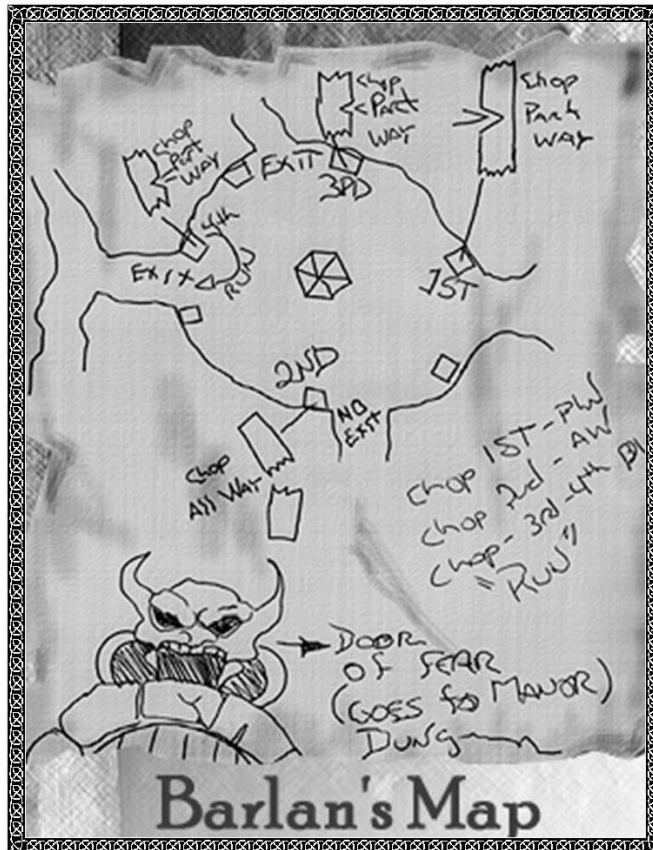 Chop
Part
Way
Chop
Park
Way
Chop
Part
Way
EXIT
3RD
4th
EXIT
RUN
1ST
2ND
NO
EXIT
Chop
All Way
Chop 1ST-PW
Chop 2nd - AW
Chop- 3rd-4th PW
"RUN"
DOOR
OF FEAR
(GOES to MANOR)
DUNG
Barlan's Map